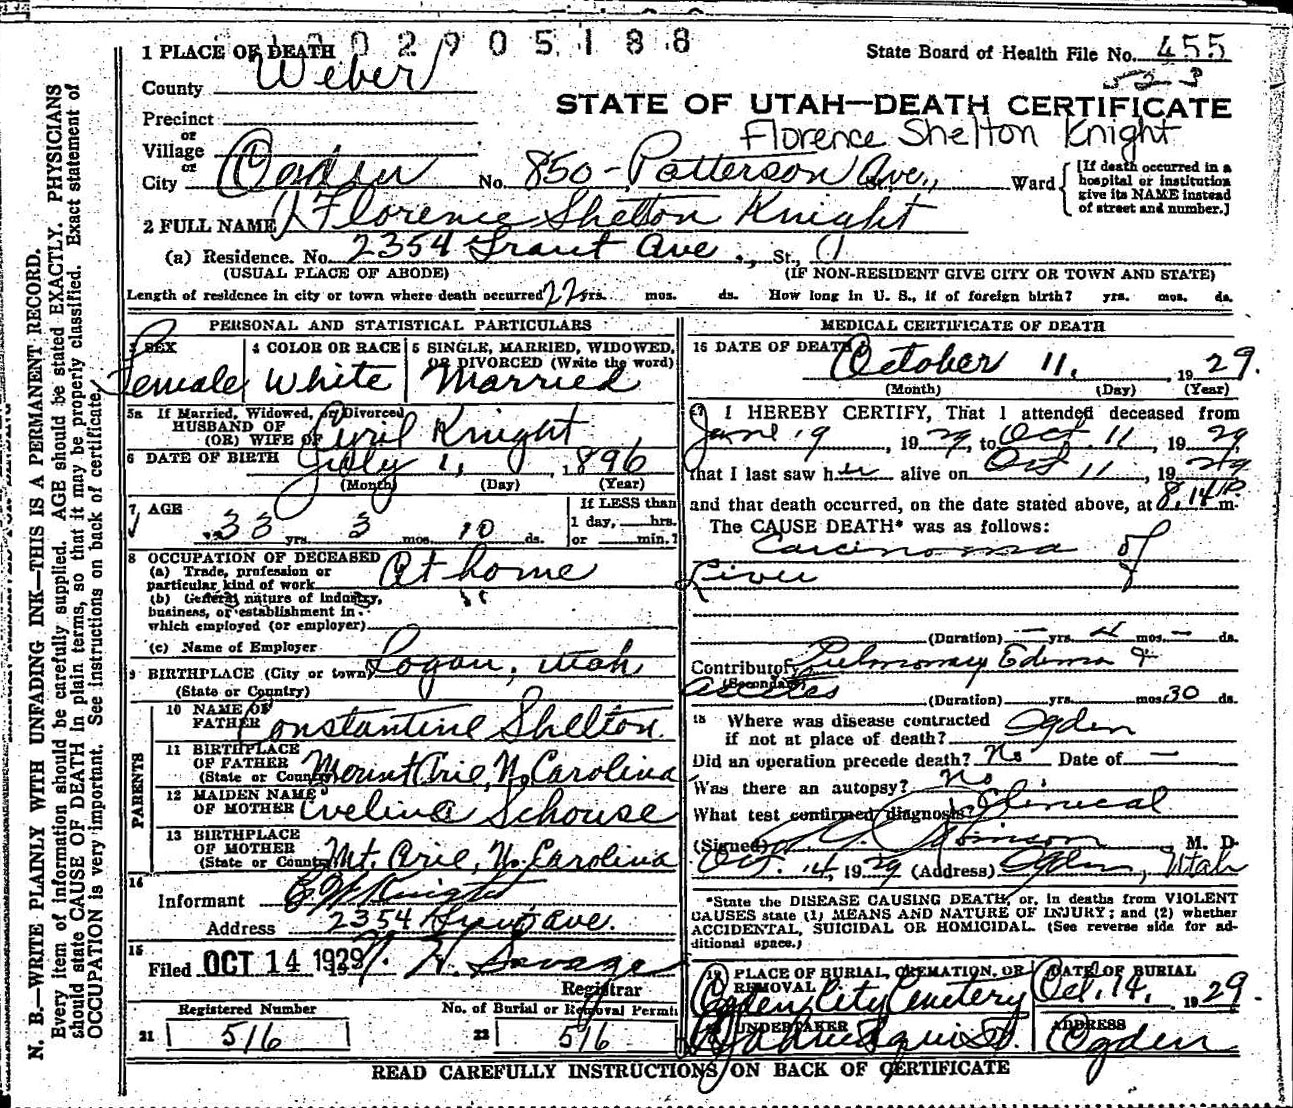 1 PLACE OF DEATH 2 9 0 5 1 8 8
State Board of Health File No. 455
County Weber
STATE OF UTAH—DEATH CERTIFICATE
Precinct
or
Florence Shelton Knight
Village
or
City Ogden No. 850 - Patterson Ave., Ward
[If death occurred in a
hospital or institution
give its NAME instead
of street and number.]
2 FULL NAME Florence Shelton Knight
(a) Residence. No. 2354 Grant Ave., St.,
(USUAL PLACE OF ABODE) (IF NON-RESIDENT GIVE CITY OR TOWN AND STATE)
Length of residence in city or town where death occurred 22 yrs. mos. ds. How long in U. S., if of foreign birth? yrs. mos. ds.
PERSONAL AND STATISTICAL PARTICULARS
3 SEX
Female
4 COLOR OR RACE
White
5 SINGLE, MARRIED, WIDOWED,
OR DIVORCED (Write the word)
Married
5a If Married, Widowed, or Divorced
HUSBAND OF
(OR) WIFE OF Cyril Knight
6 DATE OF BIRTH July 1, 1896
(Month) (Day) (Year)
7 AGE
33 yrs. 3 mos. 10 ds.
If LESS than
1 day, hrs.
or min.?
8 OCCUPATION OF DECEASED
(a) Trade, profession or
particular kind of work At home
(b) General nature of industry,
business, or establishment in
which employed (or employer)
(c) Name of Employer
9 BIRTHPLACE (City or town) Logan, Utah
(State or Country)
PARENTS
10 NAME OF
FATHER Constantine Shelton
11 BIRTHPLACE
OF FATHER
(State or Country) Mount Arie, N. Carolina
12 MAIDEN NAME
OF MOTHER Evelina Schouse
13 BIRTHPLACE
OF MOTHER
(State or Country) Mt. Arie, N. Carolina
14
Informant C W Knight
Address 2354 Grant Ave.
15
Filed OCT 14 1929 H. Savage
Registrar
Registered Number
21 516
No. of Burial or Removal Permit
22 516
MEDICAL CERTIFICATE OF DEATH
15 DATE OF DEATH October 11, 1929.
(Month) (Day) (Year)
I HEREBY CERTIFY, That I attended deceased from
June 19, 1929, to Oct 11, 1929,
that I last saw her alive on Oct 11, 1929
and that death occurred, on the date stated above, at 8,14 P. m.
The CAUSE DEATH* was as follows:
Carcinoma of
Liver
(Duration) — yrs. 4 mos. — ds.
Contributory Pulmonary Edema &
(Secondary)
Ascites (Duration) yrs. mos. 30 ds.
18 Where was disease contracted
if not at place of death? Ogden
Did an operation precede death? No Date of —
Was there an autopsy? No
What test confirmed diagnosis? Clinical
(Signed) M. D.
Oct. 14, 1929 (Address) Ogden, Utah
*State the DISEASE CAUSING DEATH, or, in deaths from VIOLENT
CAUSES state (1) MEANS AND NATURE OF INJURY; and (2) whether
ACCIDENTAL, SUICIDAL OR HOMICIDAL. (See reverse side for ad-
ditional space.)
19 PLACE OF BURIAL, CREMATION, OR
REMOVAL
Ogden City Cemetery
DATE OF BURIAL
Oct. 14, 1929.
UNDERTAKER
ADDRESS
Ogden
READ CAREFULLY INSTRUCTIONS ON BACK OF CERTIFICATE
N. B.—WRITE PLAINLY WITH UNFADING INK—THIS IS A PERMANENT RECORD.
Every item of information should be carefully supplied. AGE should be stated EXACTLY. PHYSICIANS
should state CAUSE OF DEATH in plain terms, so that it may be properly classified. Exact statement of
OCCUPATION is very important. See instructions on back of certificate.